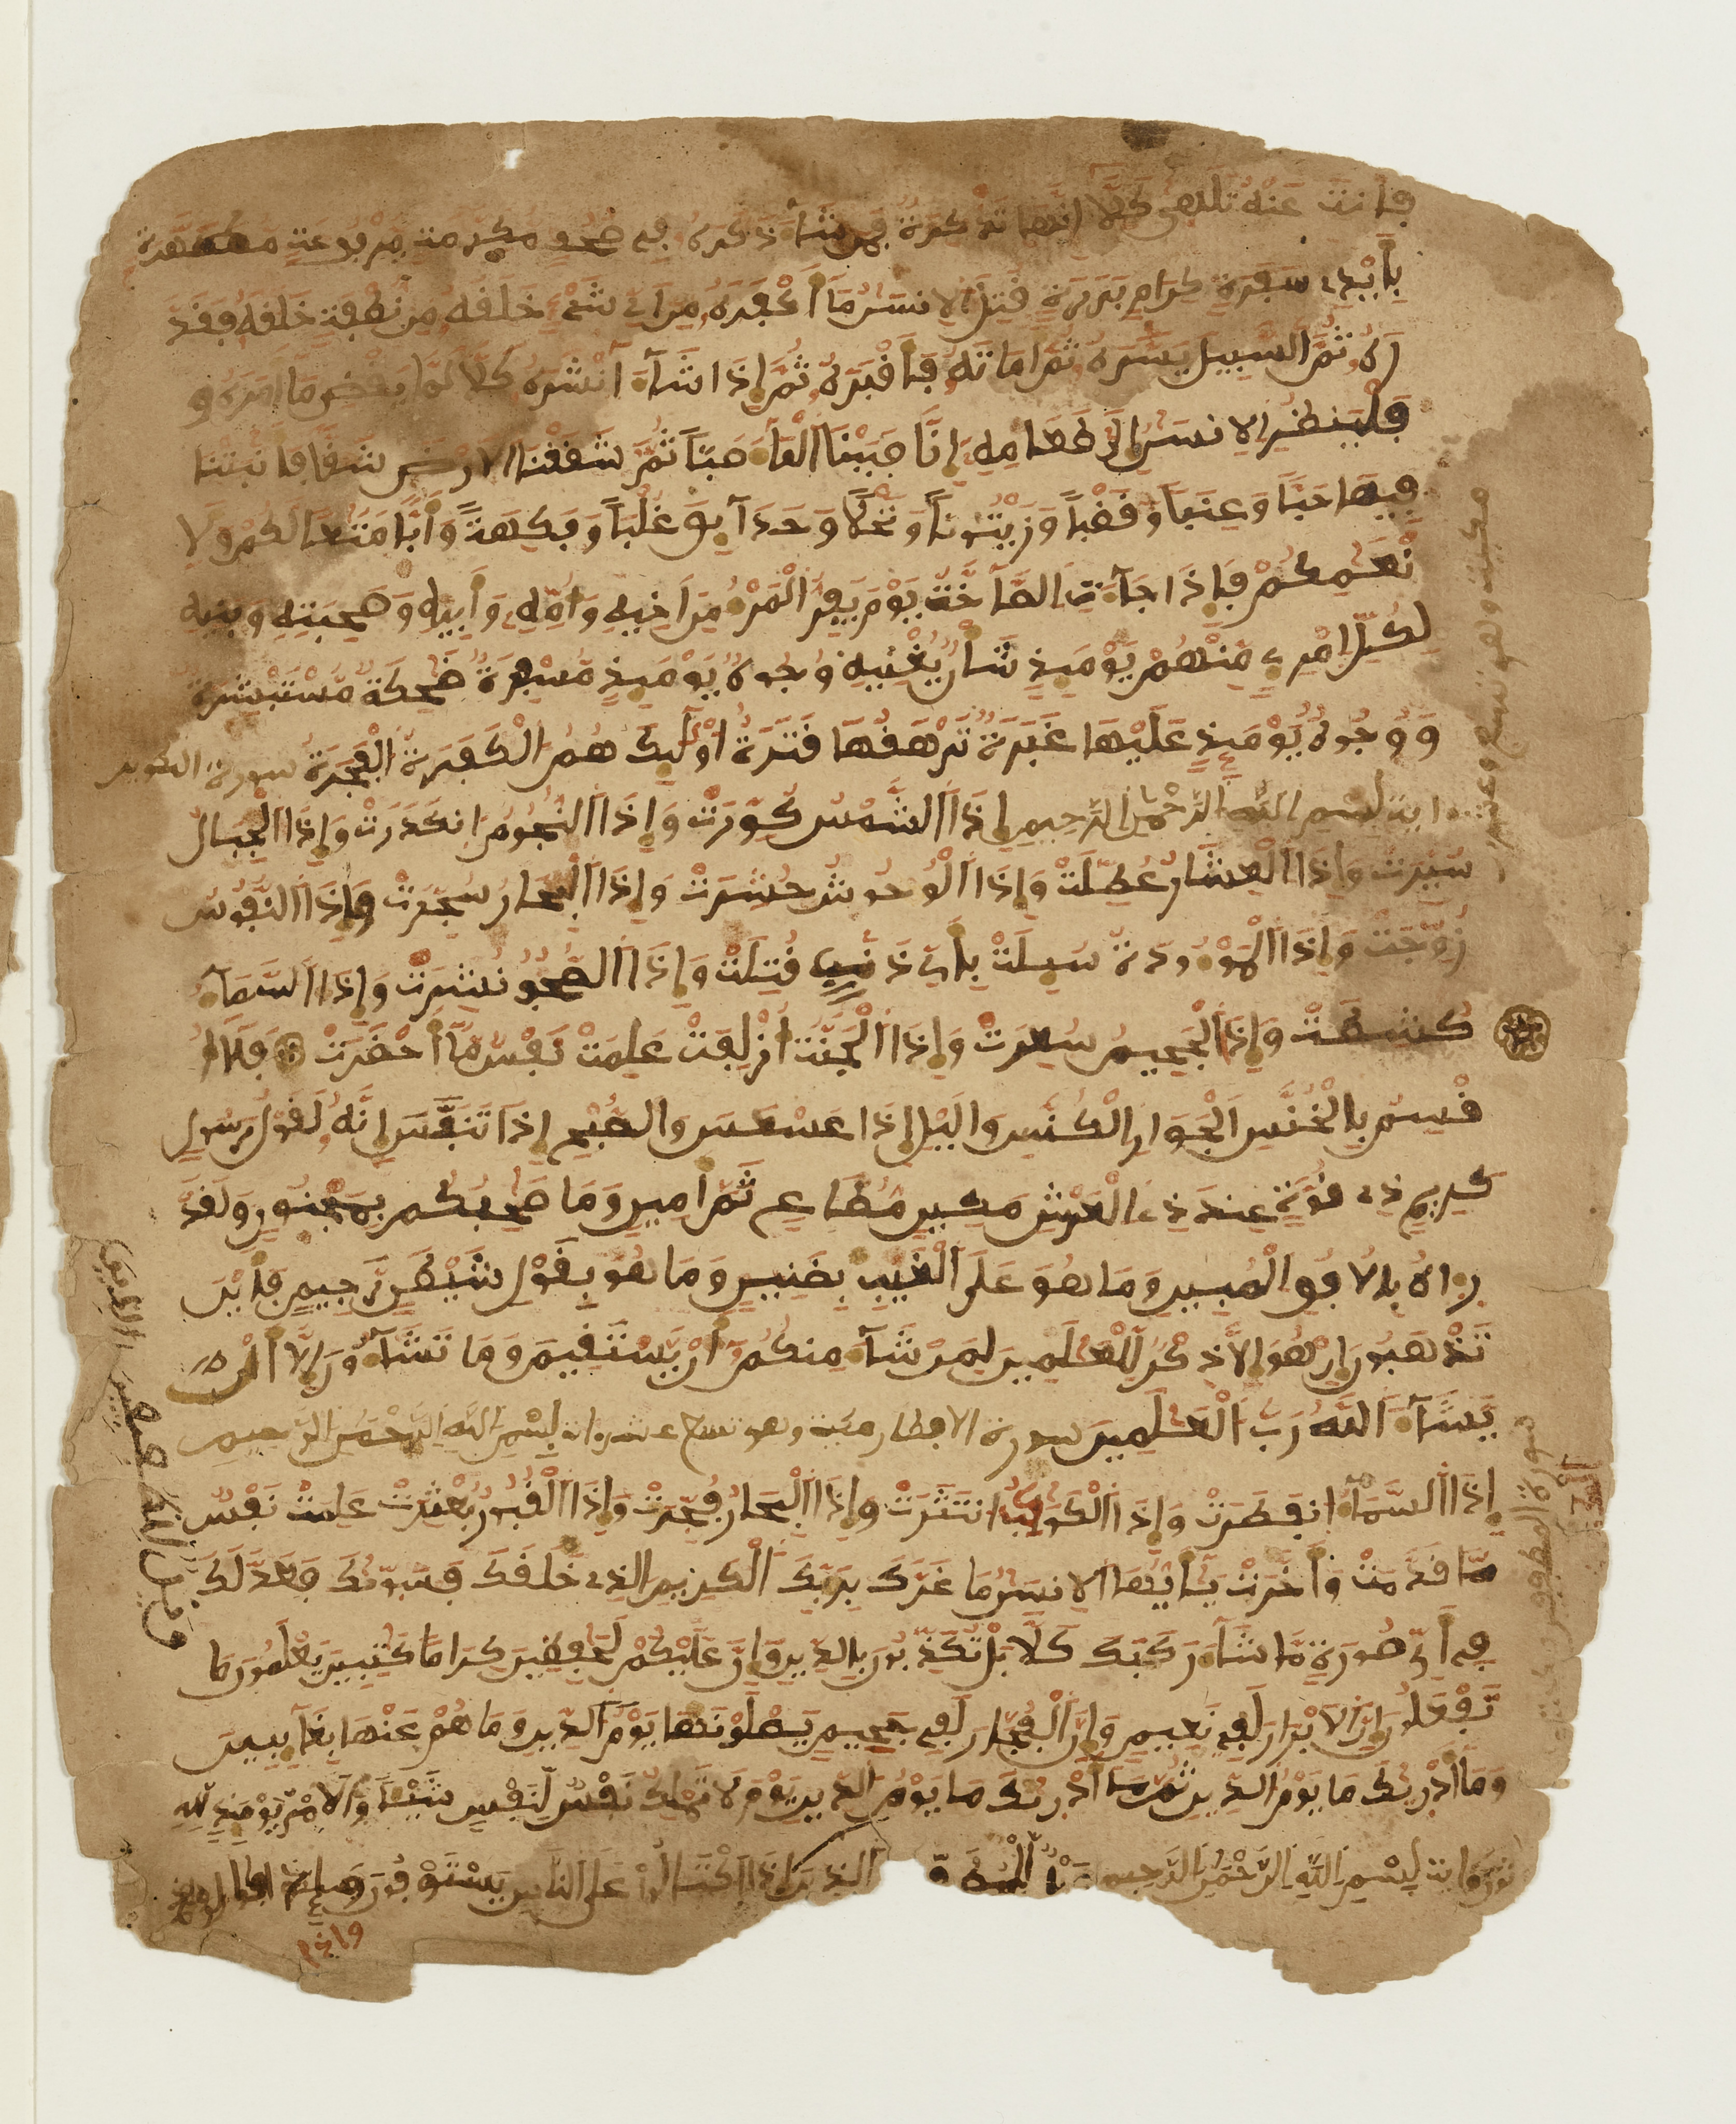 فأنت عنه تلهى كلا انها تذكرة فمن شآء ذكره في صحف مكرمة مرفوعة مطهرة
بأيدي سفرة كرام بررة قتل الانسن ما أكفره من اي شيء خلقه من نطفة خلقه فقد
ره ثم السبيل يسره ثم اماته فأقبره ثم إذا شآء انشره كلا لما يقض ما امره و
فلينظر الانسن إلى طعامه إنا صببنا المآء صبا ثم شققنا الارض شقا فأنبتنا
فيها حبا وعنبا وقضبا وزيتونا ونخلا وحدآيق غلبا وفكهة وأبا متعا لكم ولا
نعمكم فإذا جآءت الصآخة يوم يفر المرء من اخيه وأمه وأبيه وصحبته وبنيه
لكل امرء منهم يوميذ شأن يغنيه وجوه يوميذ مسفرة ضحكة مستبشرة
ووجوه يوميذ عليها غبرة ترهقها قترة أوليك هم الكفرة الفجرة سورة التكوير
اية بسم الله الرحمن الرحيم إذا الشمس كورت وإذا النجوم انكدرت وإذا الجبال
سيرت وإذا العشار عطلت وإذا الوحوش حشرت وإذا البحار سجرت وإذا النفوس
زوجت وإذا الموءودة سيلت بأي ذنب قتلت وإذا الصحف نشرت وإذا السمآء
كشطت وإذا الجحيم سعرت وإذا الجنة أزلفت علمت نفس مآ أحضرت فلا أ
قسم بالخنس الجوار الكنس واليل إذا عسعس والصبح إذا تنفس إنه لقول رسول
كريم ذي قوة عند ذي العرش مكين مطاع ثم أمين وما صحبكم بمجنون ولقد
رءاه بالافق المبين وما هو على الغيب بضنين وما هو بقول شيطن رجيم فأين
تذهبون إن هو إلا ذكر للعلمين لمن شآء منكم أن يستقيم وما تشآءون إلا أن
يشآء الله رب العلمين سورة الانفطار مكية وهي تسع عشر اية بسم الله الرحمن الرحيم
إذا السمآء انفطرت وإذا الكوكب انتثرت وإذا البحار فجرت وإذا القبور بعثرت علمت نفس
ما قدمت وأخرت يأيها الانسن ما غرك بربك الكريم الذي خلقك فسويك فعدلك
في أي صورة ما شآء ركبك كلا بل تكذبون بالدين وإن عليكم لحفظين كراما كتبين يعلمون ما
تفعلون إن الابرار لفي نعيم وإن الفجار لفي جحيم يصلونها يوم الدين وما هم عنها بغآيبين
وما أدريك ما يوم الدين ثم ما أدريك ما يوم الدين يوم لا تملك نفس لنفس شيئا والامر يوميذ لله
بسم الله الرحمن الرحيم ويل للمطففين الذين إذا اكتالوا على الناس يستوفون وإذا
مكية وهو تسع وعشرون
سورة المطففين